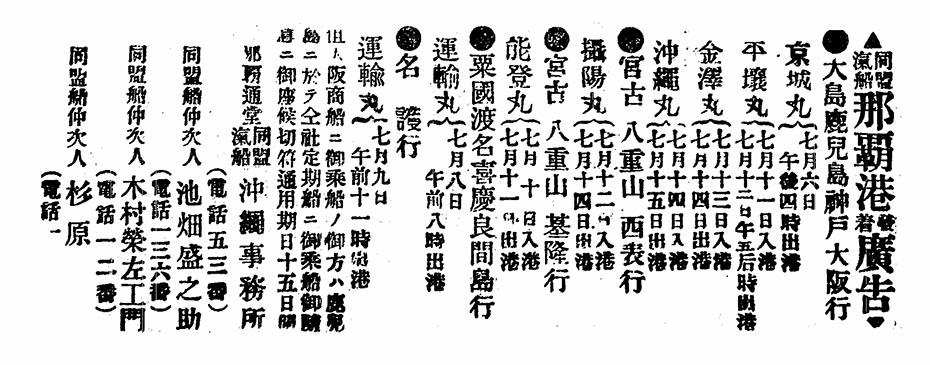 ▲同盟汽船那覇港発着廣告▼
●大島鹿兒島神戸大阪行
京城丸 七月六日 午後四時出港
平壤丸 七月十一日入港 七月十二日午五后時出港
金澤丸 七月十三日入港 七月十四日出港
沖繩丸 七月十四日入港 七月十五日出港
●宮古 八重山 西表行
攝陽丸 七月十二日入港 七月十四日出港
●宮古 八重山 基隆行
能登丸 七月十日入港 七月十一日出港
●粟國渡名喜慶良間島行
運輸丸 七月八日 午前八時出港
●名護行
運輸丸 七月九日 午前十一時出港
但大阪商船ニ御乘船ノ御方ハ鹿兒
島ニ於テ仝社定期船ニ御乘船御請
ニ御座候切符通用期日十五日間
那覇通堂 同盟汽船 沖繩事務所
同盟船仲次人 池畑盛之助 (電話五三番)
同盟船仲次人 木村榮左工門 (電話一三六番) (電話一二番)
同盟船仲次人 杉原 (電話一